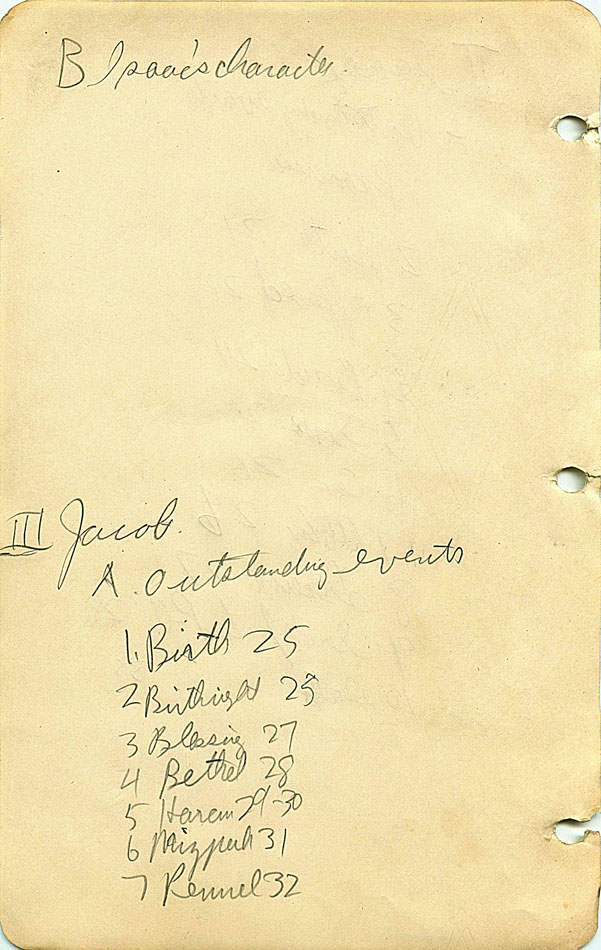 B Isaac's character.
III Jacob.
A. Outstanding events
1. Birth 25
2 Birthright 25
3 Blessing 27
4 Bethel 28
5 Haran 29-30
6 Mizpah 31
7 Penuel 32